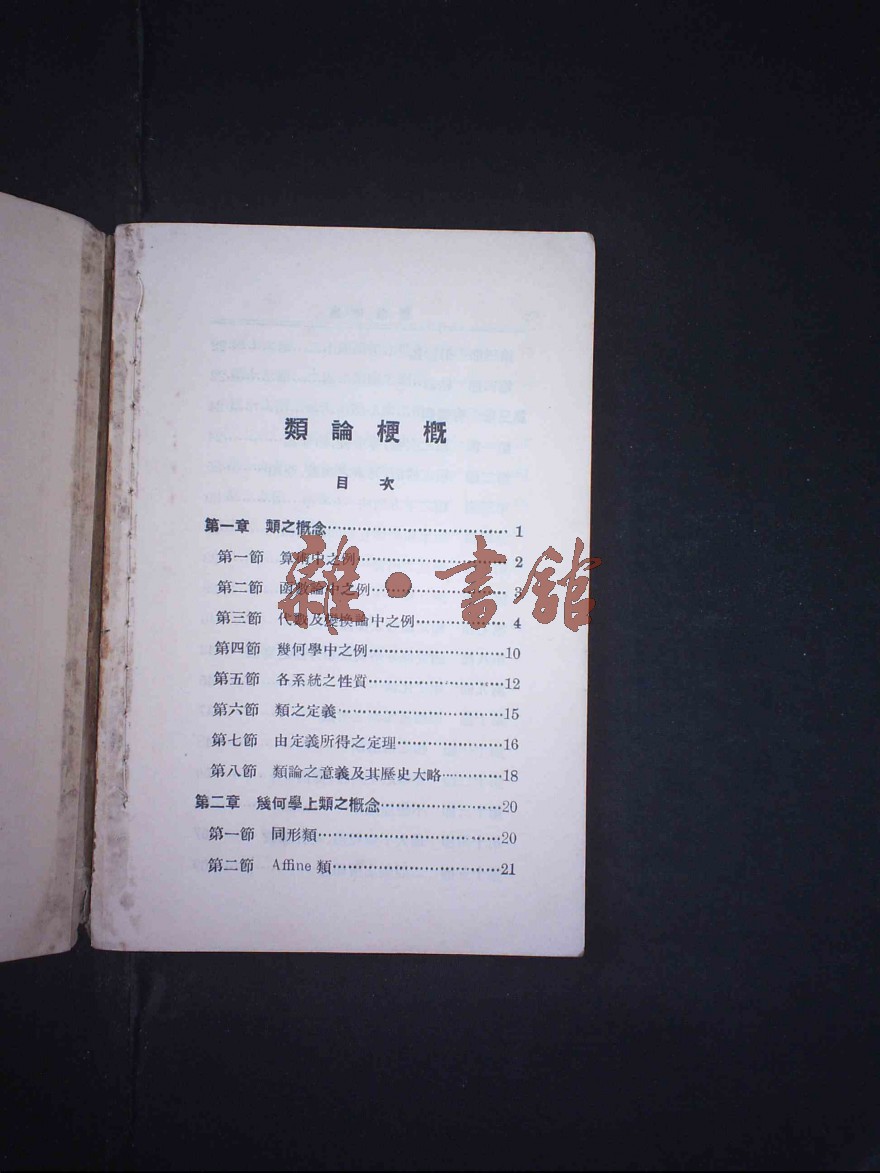 類論梗概
目次
第一章 類之概念……………………………… 1
第一節 算術中之例………………………… 2
第二節 函數論中之例……………………… 3
第三節 代數及變換論中之例……………… 4
第四節 幾何學中之例………………………10
第五節 各系統之性質………………………12
第六節 類之定義……………………………15
第七節 由定義所得之定理…………………16
第八節 類論之意義及其歷史大略…………18
第二章 幾何學上類之概念……………………20
第一節 同形類………………………………20
第二節 Affine 類……………………………21
雜·書館